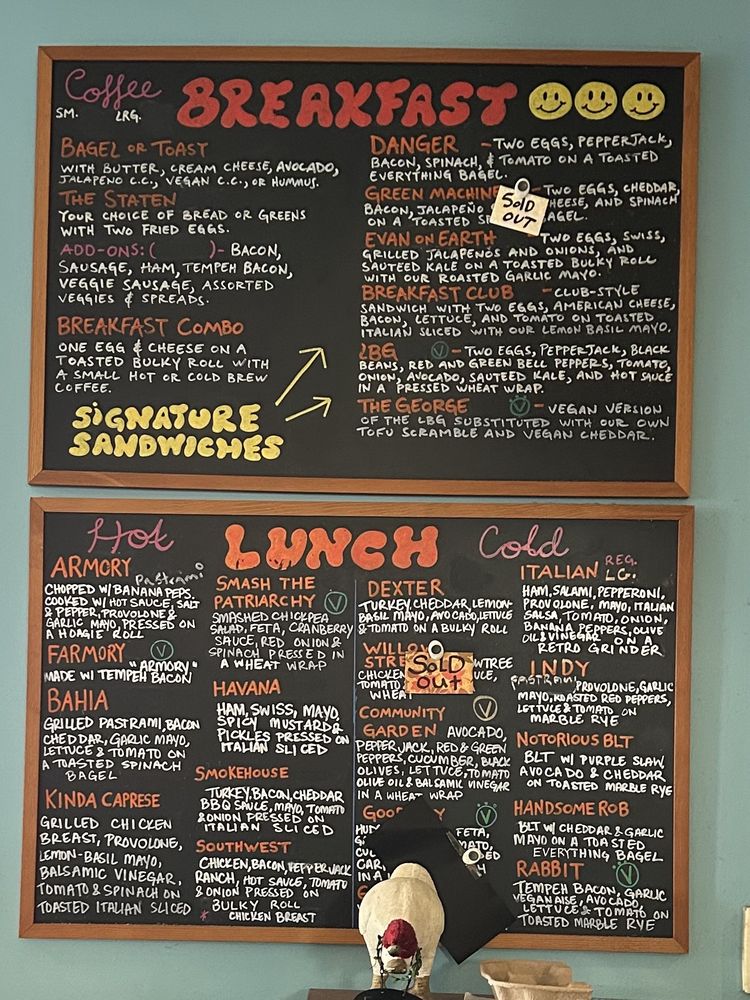 Coffee
SM. LRG.
BREAKFAST
BAGEL OR TOAST
WITH BUTTER, CREAM CHEESE, AVOCADO,
JALAPENO C.C., VEGAN C.C., OR HUMMUS.
THE STATEN
YOUR CHOICE OF BREAD OR GREENS
WITH TWO FRIED EGGS.
ADD-ONS: ( ) - BACON,
SAUSAGE, HAM, TEMPEH BACON,
VEGGIE SAUSAGE, ASSORTED
VEGGIES & SPREADS.
BREAKFAST COMBO
ONE EGG & CHEESE ON A
TOASTED BULKY ROLL WITH
A SMALL HOT OR COLD BREW
COFFEE.
SIGNATURE
SANDWICHES
DANGER - TWO EGGS, PEPPERJACK,
BACON, SPINACH, & TOMATO ON A TOASTED
EVERYTHING BAGEL.
GREEN MACHINE - TWO EGGS, CHEDDAR,
BACON, JALAPEÑO HEESE, AND SPINACH
ON A TOASTED SP AGEL.
SOLD
OUT
EVAN ON EARTH TWO EGGS, SWISS,
GRILLED JALAPENOS AND ONIONS, AND
SAUTEED KALE ON A TOASTED BULKY ROLL
WITH OUR ROASTED GARLIC MAYO.
BREAKFAST CLUB - CLUB-STYLE
SANDWICH WITH TWO EGGS, AMERICAN CHEESE,
BACON, LETTUCE, AND TOMATO ON TOASTED
ITALIAN SLICED WITH OUR LEMON BASIL MAYO.
LBG V - TWO EGGS, PEPPERJACK, BLACK
BEANS, RED AND GREEN BELL PEPPERS, TOMATO,
ONION, AVOCADO, SAUTEED KALE, AND HOT SAUCE
IN A PRESSED WHEAT WRAP.
THE GEORGE V - VEGAN VERSION
OF THE LBG SUBSTITUTED WITH OUR OWN
TOFU SCRAMBLE AND VEGAN CHEDDAR.
Hot
LUNCH
Cold
ARMORY
Pastrami
CHOPPED W/ BANANA PEPS.
COOKED W/ HOT SAUCE, SALT
& PEPPER, PROVOLONE &
GARLIC MAYO, PRESSED ON
A HOAGIE ROLL
FARMORY V
"ARMORY"
MADE W/ TEMPEH BACON
BAHIA
GRILLED PASTRAMI, BACON
CHEDDAR, GARLIC MAYO,
LETTUCE & TOMATO ON
A TOASTED SPINACH
BAGEL
KINDA CAPRESE
GRILLED CHICKEN
BREAST, PROVOLONE,
LEMON-BASIL MAYO,
BALSAMIC VINEGAR,
TOMATO & SPINACH ON
TOASTED ITALIAN SLICED
SMASH THE
PATRIARCHY V
SMASHED CHICKPEA
SALAD, FETA, CRANBERRY
SAUCE, RED ONION &
SPINACH PRESSED IN
A WHEAT WRAP
HAVANA
HAM, SWISS, MAYO
SPICY MUSTARD &
PICKLES PRESSED ON
ITALIAN SLICED
SMOKEHOUSE
TURKEY, BACON, CHEDDAR
BBQ SAUCE, MAYO, TOMATO
& ONION PRESSED ON
ITALIAN SLICED
SOUTHWEST
CHICKEN, BACON, PEPPERJACK
RANCH, HOT SAUCE, TOMATO
& ONION PRESSED ON
BULKY ROLL
* CHICKEN BREAST
DEXTER
TURKEY, CHEDDAR, LEMON-
BASIL MAYO, AVOCADO, LETTUCE
& TOMATO ON A BULKY ROLL
WILLOW
STREE WTREE
CHICKEN UCE,
TOMATO
WHEAT
SOLD
OUT
COMMUNITY V
GARDEN AVOCADO,
PEPPERJACK, RED & GREEN
PEPPERS, CUCUMBER, BLACK
OLIVES, LETTUCE, TOMATO
OLIVE OIL & BALSAMIC VINEGAR
IN A WHEAT WRAP
GOO V
HUM FETA,
CUC MATO,
CAR
IN A
ITALIAN REG.
LG.
HAM, SALAMI, PEPPERONI,
PROVOLONE, MAYO, ITALIAN
SALSA, TOMATO, ONION,
BANANA PEPPERS, OLIVE
OIL & VINEGAR ON A
RETRO GRINDER
INDY
pastrami, PROVOLONE, GARLIC
MAYO, ROASTED RED PEPPERS,
LETTUCE & TOMATO ON
MARBLE RYE
NOTORIOUS BLT
BLT W/ PURPLE SLAW,
AVOCADO & CHEDDAR
ON TOASTED MARBLE RYE
HANDSOME ROB
BLT W/ CHEDDAR & GARLIC
MAYO ON A TOASTED
EVERYTHING BAGEL
RABBIT V
TEMPEH BACON, GARLIC
VEGANAISE, AVOCADO,
LETTUCE & TOMATO ON
TOASTED MARBLE RYE